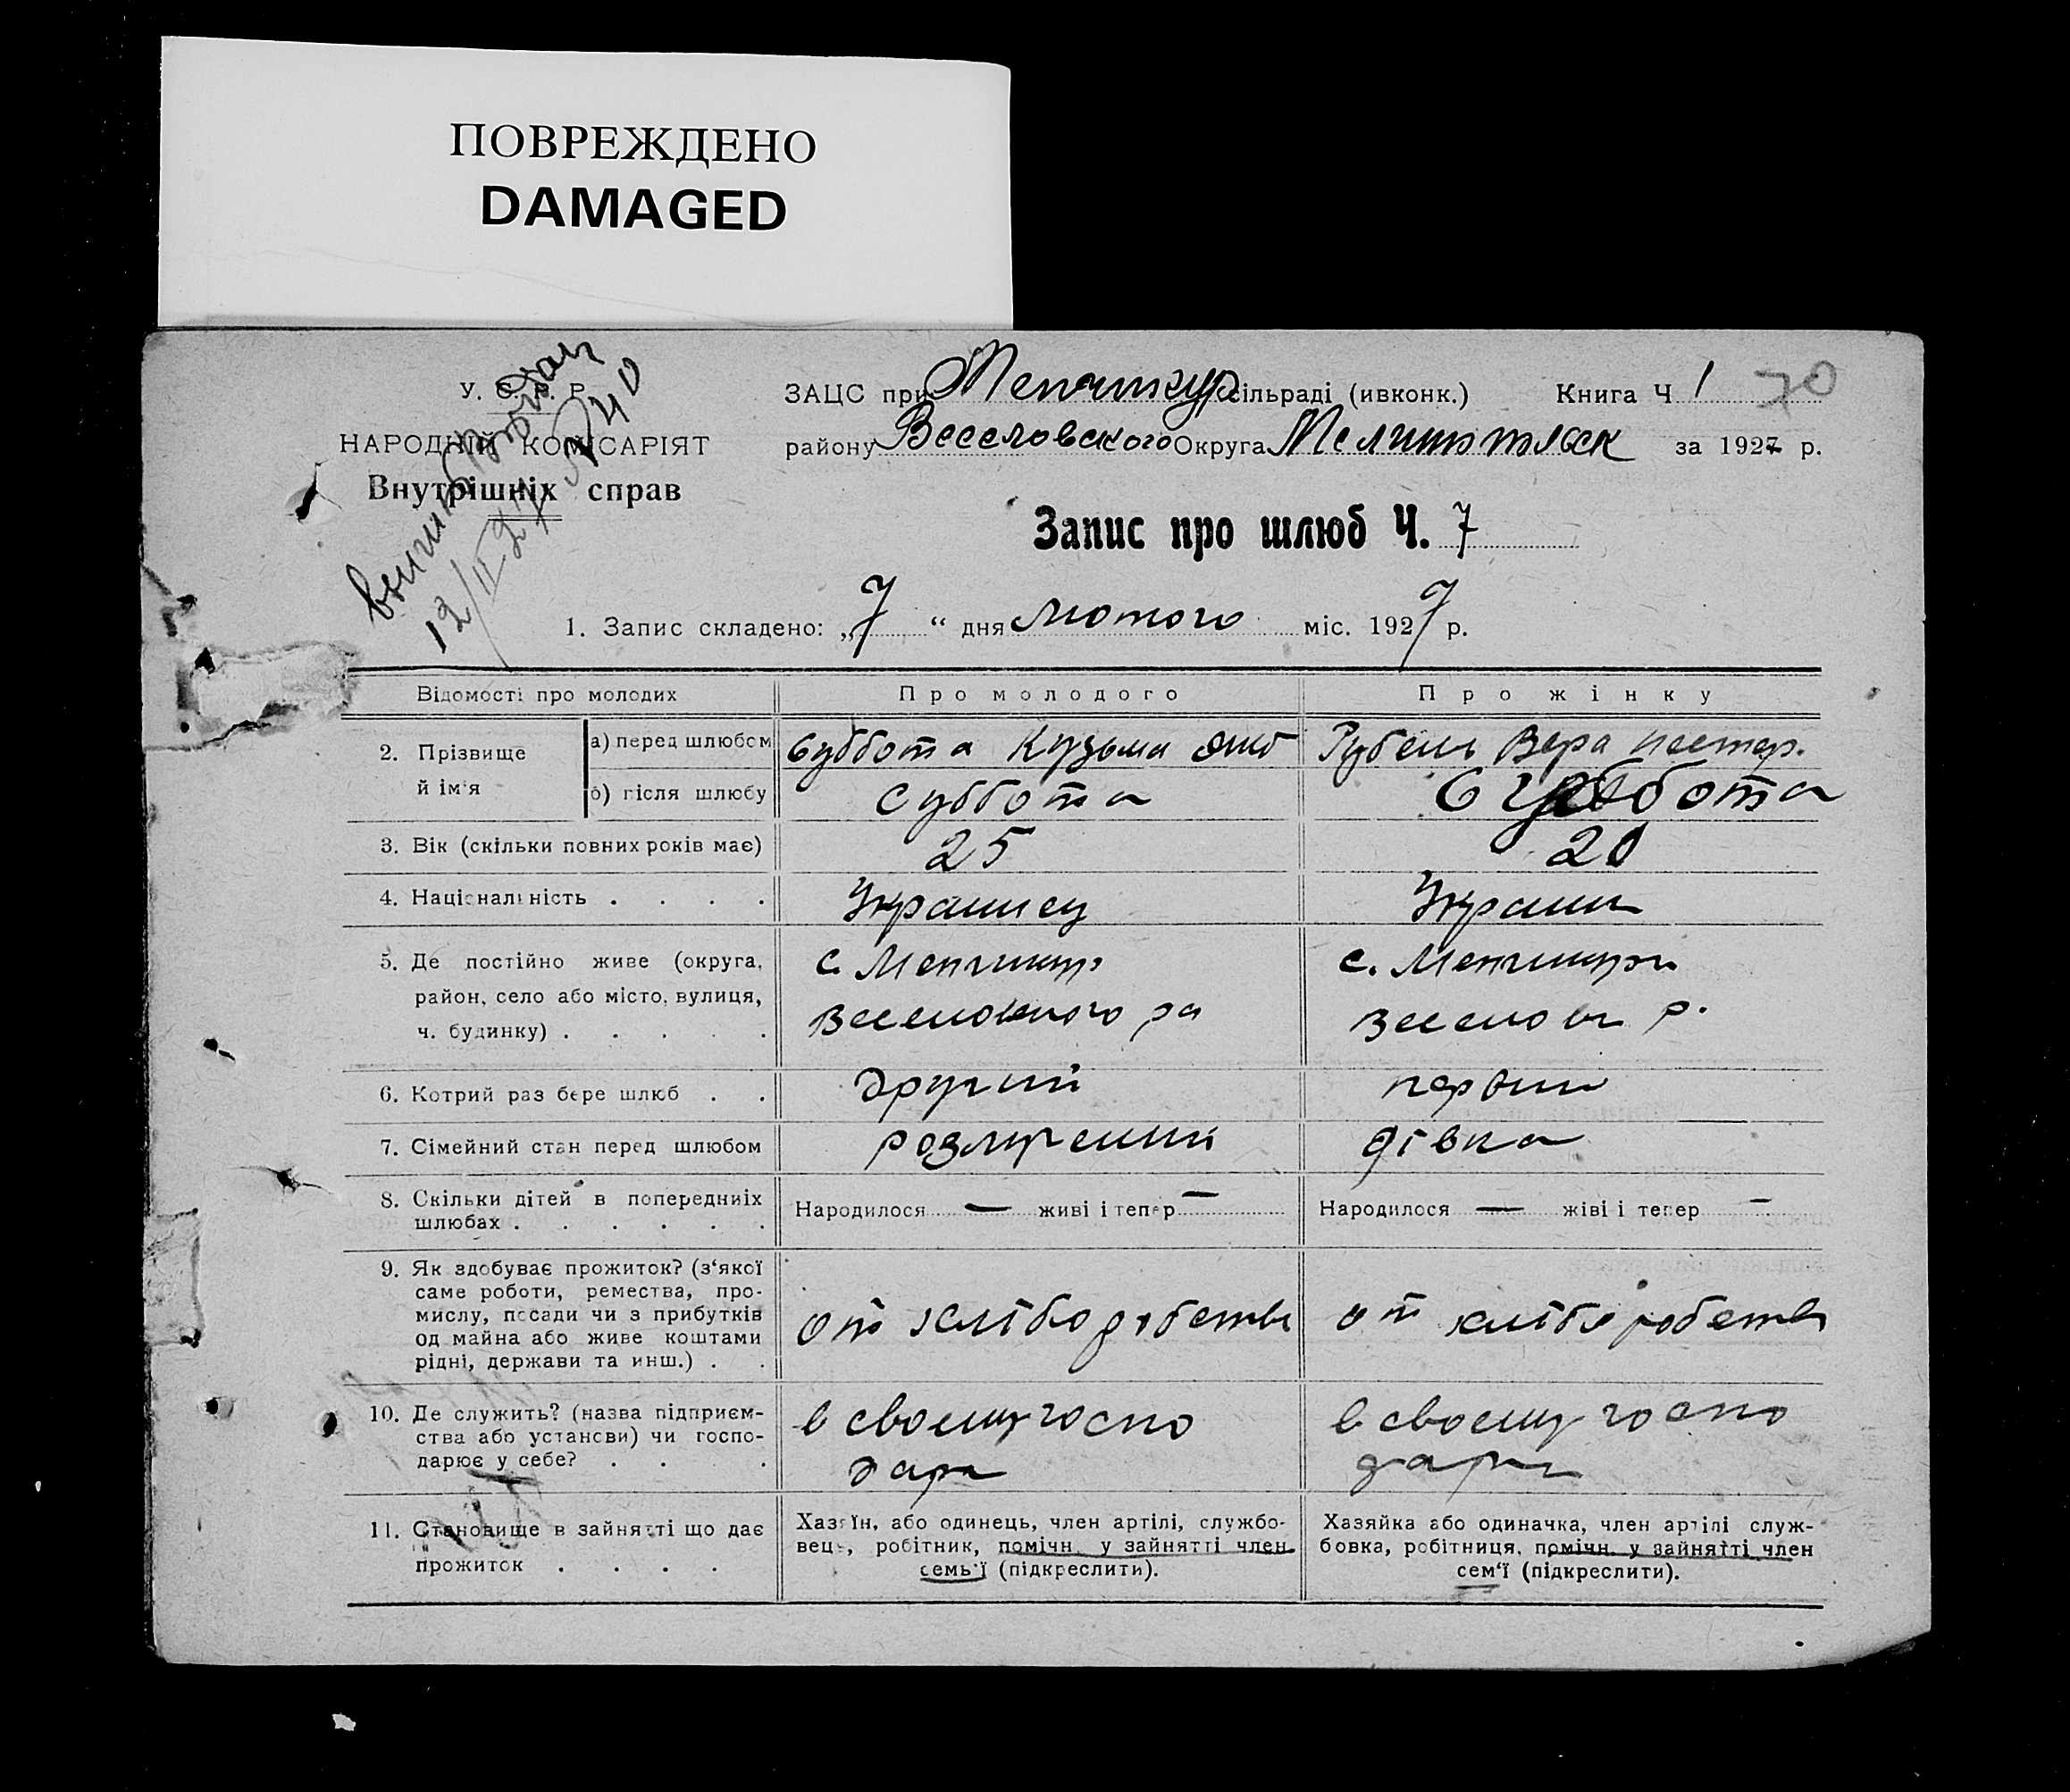 ПОВРЕЖДЕНО
DAMAGED
У. С. Р. Р.
НАРОДНІЙ КОМІСАРІЯТ
Внутрішніх справ
12/II 27 № 40
ЗАЦС при Менчикур сільраді (ивконк.) Книга Ч 1 70
району Веселовского Округа Мелитопольск за 1927 р.
Запис про шлюб Ч. 7
1. Запис складено: „7“ дня лютого міс. 1927 р.
Відомості про молодих Про молодого Про жінку
2. Прізвище й ім'я
а) перед шлюбом Суббота Кузьма Рубель Вера Нестер.
б) після шлюбу Суббота Суббота
3. Вік (скільки повних років має) 25 20
4. Національність . . . . Украинец Украин
5. Де постійно живе (округа, с. Менчикур с. Менчикури
район, село або місто, вулиця, Веселовского ра Веселов р.
ч. будинку) . . . . .
6. Котрий раз бере шлюб . . другий первий
7. Сімейний стан перед шлюбом розлучений дівка
8. Скільки дітей в попередниіх Народилося — живі і тепер — Народилося — жіві і тепер —
шлюбах . . . . . .
9. Як здобуває прожиток? (з‘якої
саме роботи, ремества, про-
мислу, посади чи з прибутків от хлібородства от хліборобства
од майна або живе коштами
рідні, держави та инш.) . .
10. Де служить? (назва підприєм- в своему госпо в своему госпо
ства або установи) чи госпо-
дарює у себе? . . . . дари дари
11. Становище в зайнятті що дає Хазяїн, або одинець, член артілі, службо- Хазяйка або одиначка, член артілі служ-
прожиток . . . . вець, робітник, помічн. у зайнятті член бовка, робітниця, помічн. у зайнятті член
семь'ї (підкреслити). сем‘ї (підкреслити).